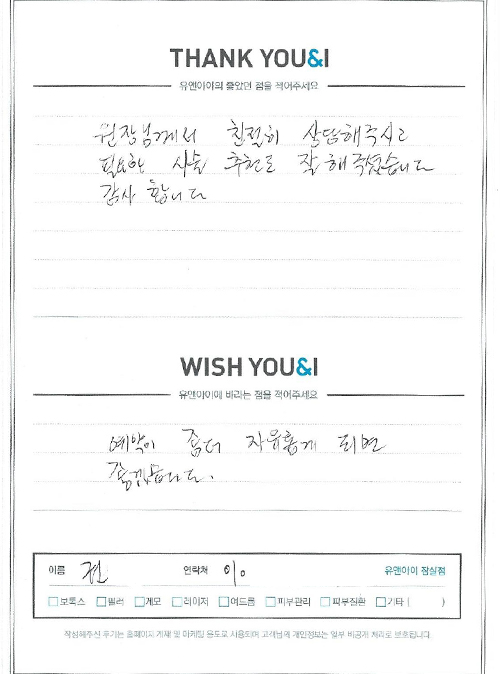 THANK YOU&I
유앤아이의 좋았던 점을 적어주세요
원장님께서 친절히 상담해주시고
필요한 시술 추천도 잘 해주셨습니다
감사합니다
WISH YOU&I
유앤아이에 바라는 점을 적어주세요
예약이 좀더 자유롭게 되면
좋겠습니다.
이름 전 연락처 010 유앤아이 잠실점
보톡스 필러 제모 레이저 여드름 피부관리 피부질환 기타 ( )
작성해주신 후기는 홈페이지 게재 및 마케팅 용도로 사용되며 고객님의 개인정보는 일부 비공개 처리로 보호됩니다.